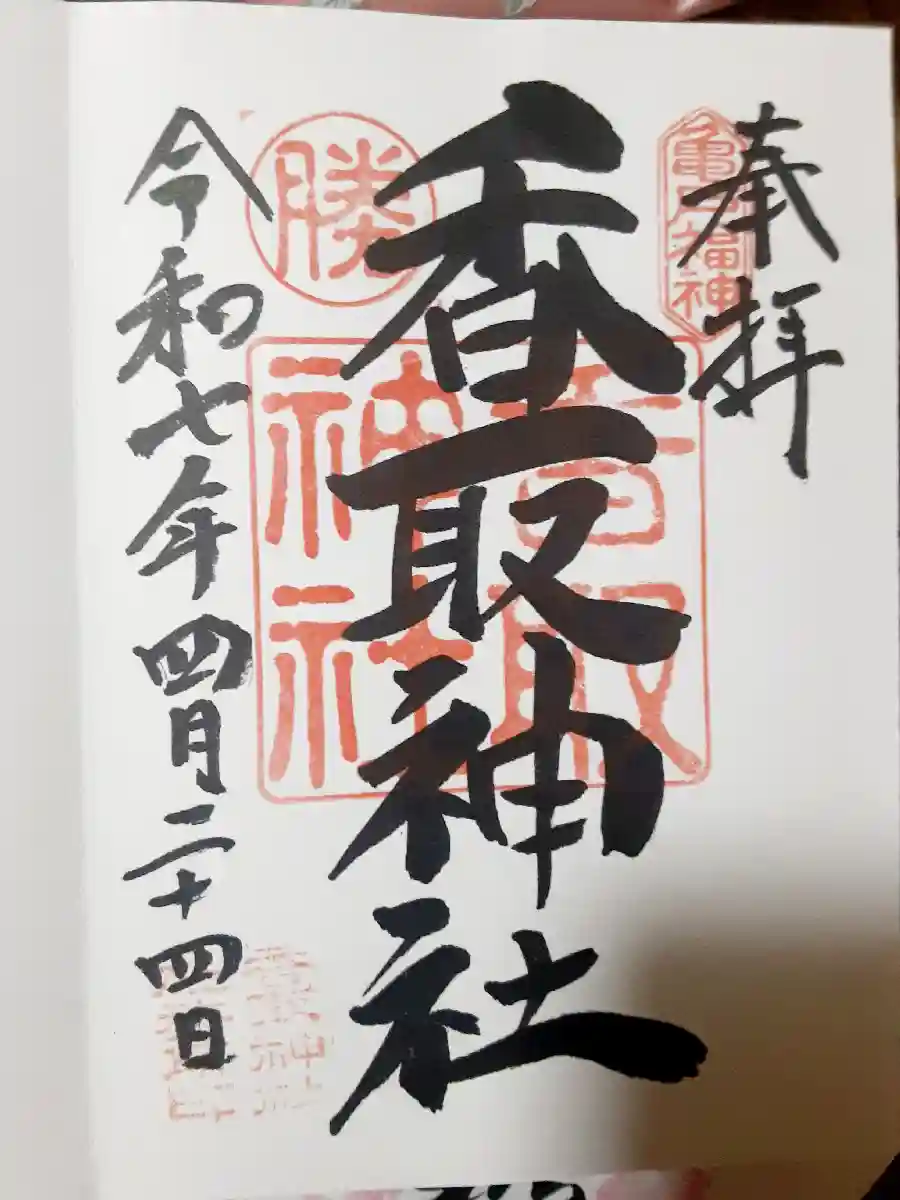 奉拝
亀戸福神
香取神社
香取
神社
勝
令和七年四月二十四日